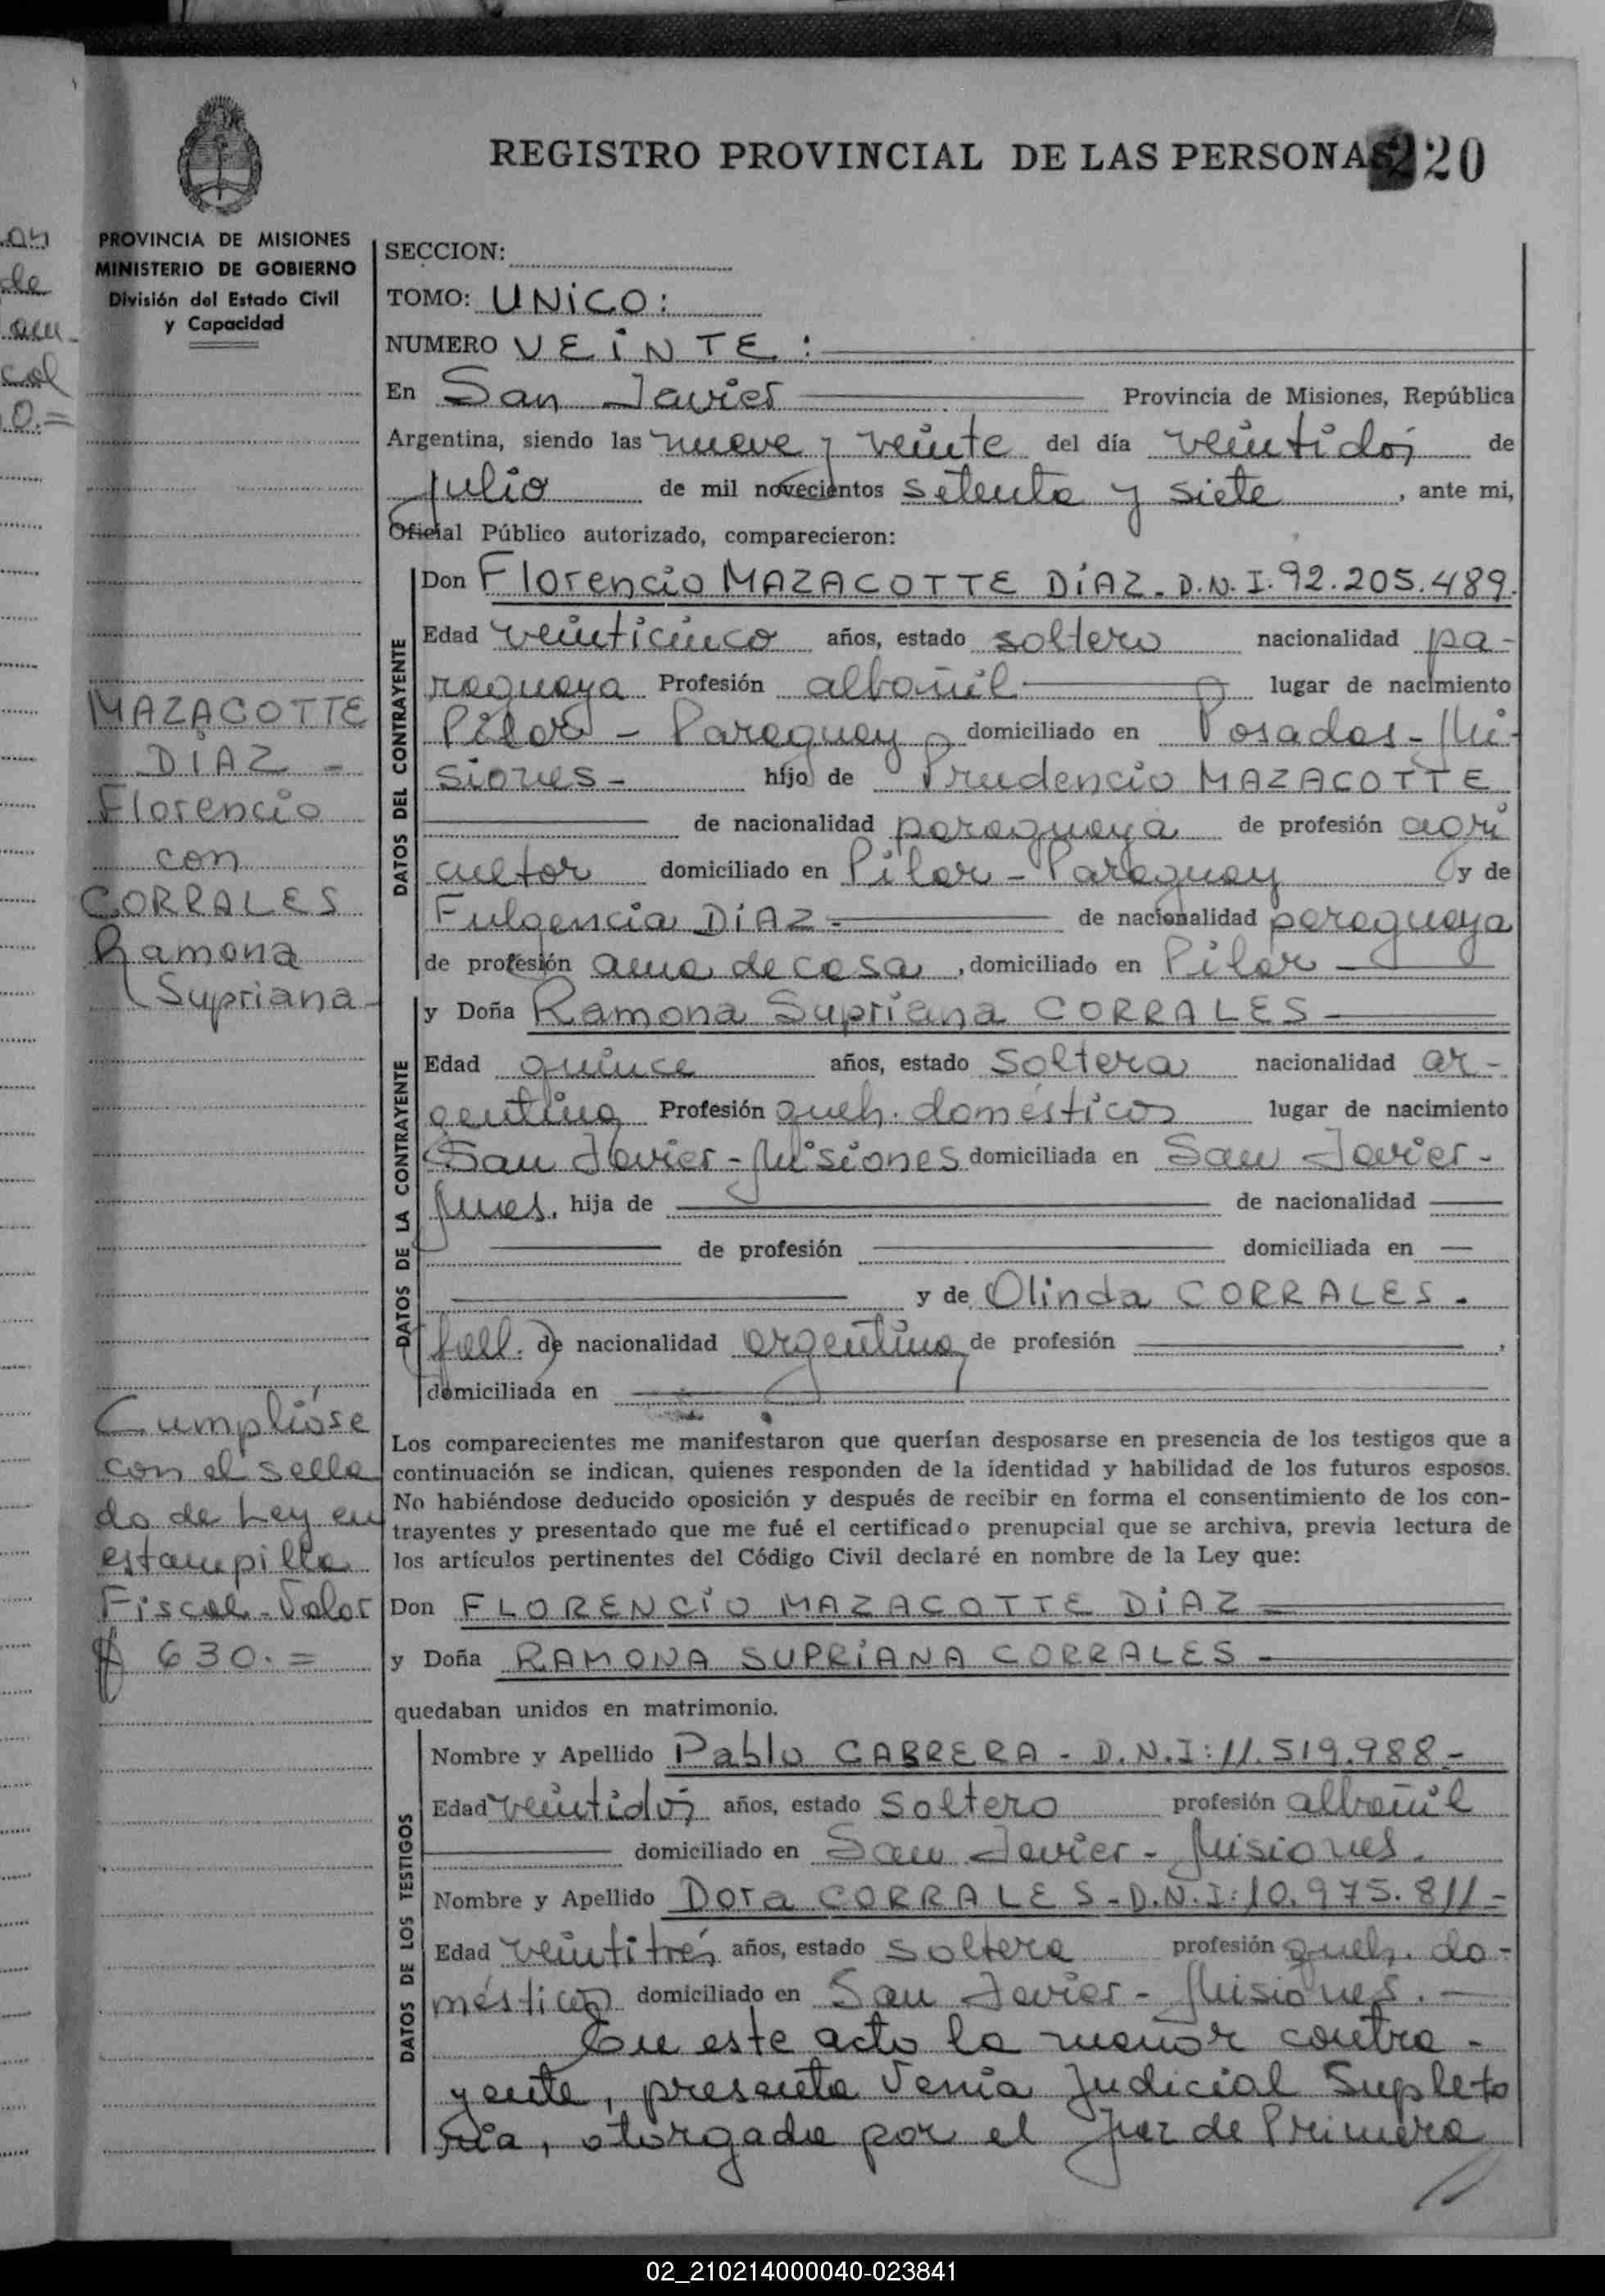 REGISTRO PROVINCIAL DE LAS PERSONAS 220
PROVINCIA DE MISIONES
MINISTERIO DE GOBIERNO
División del Estado Civil
y Capacidad
SECCION:
TOMO: UNICO:
NUMERO VEINTE:
En San Javier Provincia de Misiones, República
Argentina, siendo las nueve y veinte del día veintidós de
julio de mil novecientos setenta y siete, ante mi,
Oficial Público autorizado, comparecieron:
DATOS DEL CONTRAYENTE
Don Florencio MAZACOTTE DÍAZ. D.N.I. 92.205.489.
Edad veinticinco años, estado soltero nacionalidad pa-
raguaya Profesión albañil lugar de nacimiento
Pilar - Paraguay domiciliado en Posadas - Mi-
siones - hijo de Prudencio MAZACOTTE
de nacionalidad paraguaya de profesión agri
cultor domiciliado en Pilar - Paraguay y de
Fulgencia DÍAZ - de nacionalidad paraguaya
de profesión ama de casa, domiciliado en Pilar
DATOS DE LA CONTRAYENTE
y Doña Ramona Supriana CORRALES
Edad quince años, estado soltera nacionalidad ar-
gentina Profesión queh. domésticos lugar de nacimiento
San Javier - Misiones domiciliada en San Javier -
Mnes. hija de de nacionalidad
de profesión domiciliada en
y de Olinda CORRALES.
(fall.) de nacionalidad argentina de profesión ,
domiciliada en
MAZACOTTE
DÍAZ -
Florencio
con
CORRALES
Ramona
Supriana
Los comparecientes me manifestaron que querían desposarse en presencia de los testigos que a
continuación se indican, quienes responden de la identidad y habilidad de los futuros esposos.
No habiéndose deducido oposición y después de recibir en forma el consentimiento de los con-
trayentes y presentado que me fué el certificado prenupcial que se archiva, previa lectura de
los artículos pertinentes del Código Civil declaré en nombre de la Ley que:
Don FLORENCIO MAZACOTTE DÍAZ
y Doña RAMONA SUPRIANA CORRALES -
quedaban unidos en matrimonio.
Cumplióse
con el sella
do de Ley en
estampilla
Fiscal - Valor
$ 630.=
DATOS DE LOS TESTIGOS
Nombre y Apellido Pablo CABRERA - D.N.I: 11.519.988 -
Edad veintidós años, estado soltero profesión albañil
domiciliado en San Javier - Misiones.
Nombre y Apellido Dora CORRALES - D.N.I: 10.975.811 -
Edad veintitrés años, estado soltera profesión queh. do-
mésticos domiciliado en San Javier - Misiones. -
En este acto la menor contra-
yente, presenta Venia Judicial Supleto
ria, otorgada por el Juez de Primera
02_210214000040-023841